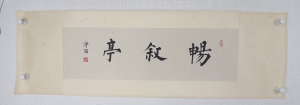 暢敘亭